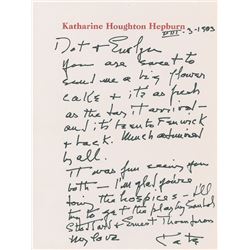 Katharine Houghton Hepburn
VIII - 3 - 1983
Dot & Evelyn
You are sweet to
send me a big flower
cake & it is as fresh
as the day it arrived
and its been to Fenwick
& back. Much admired
by all.
It was fun seeing you
both – I'm glad you're
the hospices – I'll
try to get the
Stoddard & Ernest Thompsons
my love